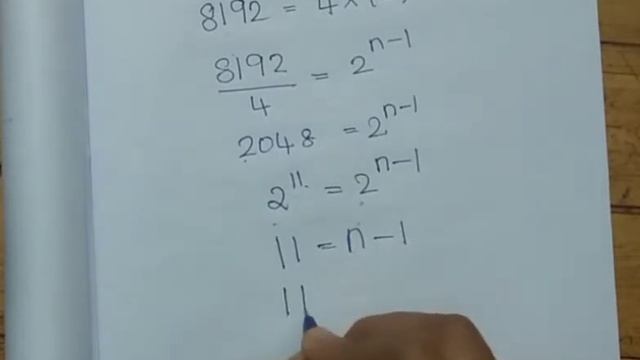 8192 = 4×
8192/4 = 2^(n-1)
2048 = 2^(n-1)
2^11. = 2^(n-1)
11 = n-1
11